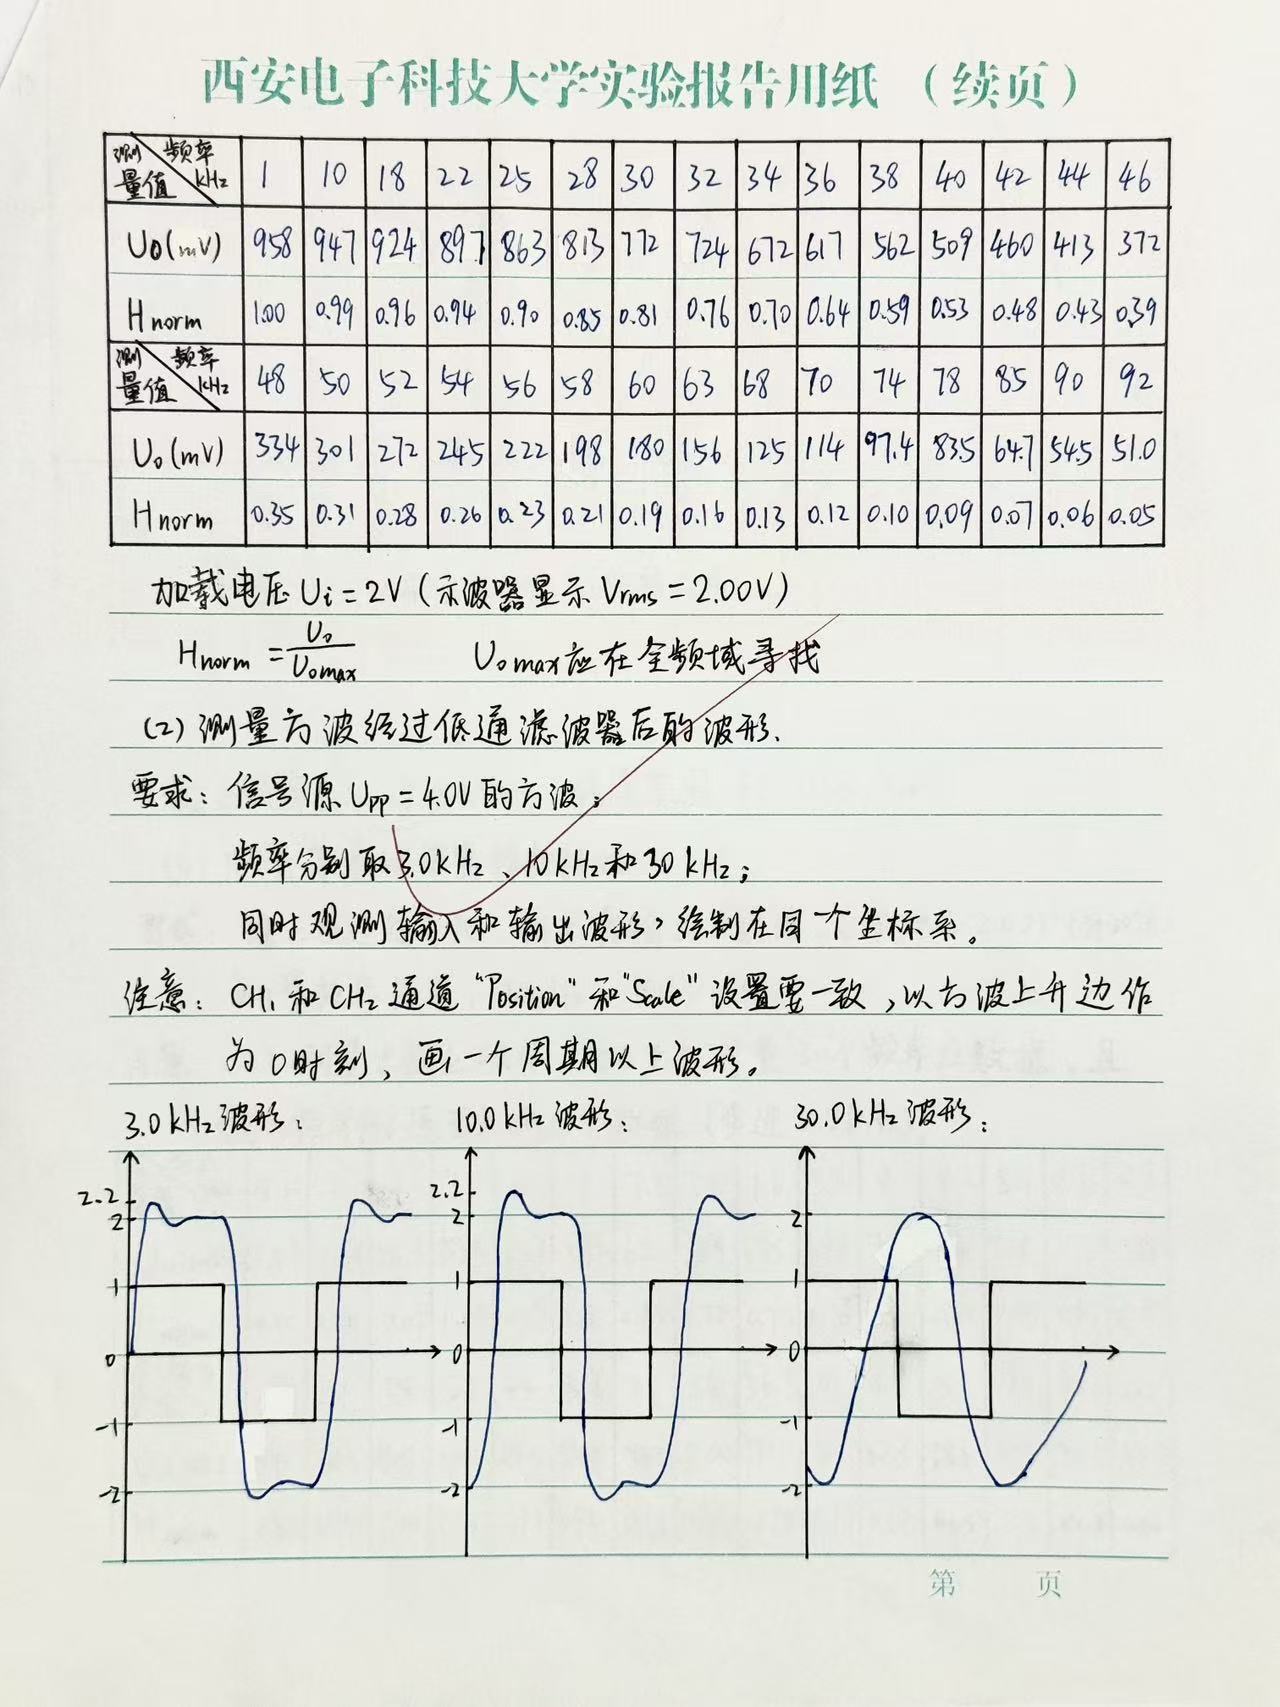 西安电子科技大学实验报告用纸（续页）
测量值 频率kHz 1 10 18 22 25 28 30 32 34 36 38 40 42 44 46
Uo(mV) 958 947 924 897 863 813 772 724 672 617 562 509 460 413 372
Hnorm 1.00 0.99 0.96 0.94 0.90 0.85 0.81 0.76 0.70 0.64 0.59 0.53 0.48 0.43 0.39
测量值 频率kHz 48 50 52 54 56 58 60 63 68 70 74 78 85 90 92
Uo(mV) 334 301 272 245 222 198 180 156 125 114 97.4 83.5 64.7 54.5 51.0
Hnorm 0.35 0.31 0.28 0.26 0.23 0.21 0.19 0.16 0.13 0.12 0.10 0.09 0.07 0.06 0.05
加载电压Ui=2V(示波器显示Vrms=2.00V)
Hnorm=Uo/Uomax Uomax应在全频域寻找
(2)测量方波经过低通滤波器后的波形.
要求：信号源Upp=4.0V的方波；
频率分别取3.0kHz、10kHz和30kHz；
同时观测输入和输出波形，绘制在同一个坐标系。
注意：CH1和CH2通道"Position"和"Scale"设置要一致，以方波上升边作
为0时刻，画一个周期以上波形。
3.0kHz波形： 10.0kHz波形： 30.0kHz波形：
2.2 2.2
2 2 2
1 1 1
0 0 0
-1 -1 -1
-2 -2 -2
第 页